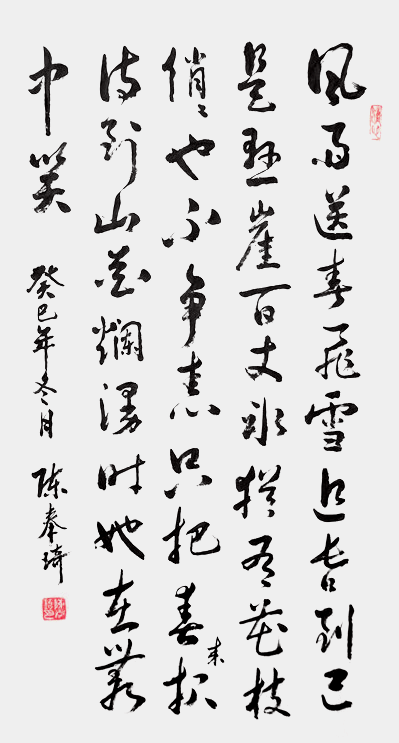 风雨送春飛雪迎春到已
是悬崖百丈冰犹有花枝
俏々也不争春只把春来报
待到山花爛漫时她在叢
中笑 癸巳年冬月 陈奉琦